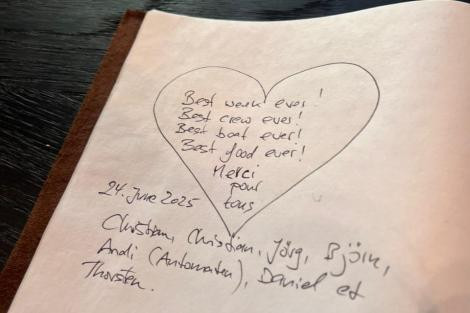 Best week ever!
Best crew ever!
Best boat ever!
Best food ever!
Merci
pour
tous
24. June 2025
Christian, Christian, Jörg, Björn,
Andi (Automaten), Daniel et
Thorsten.